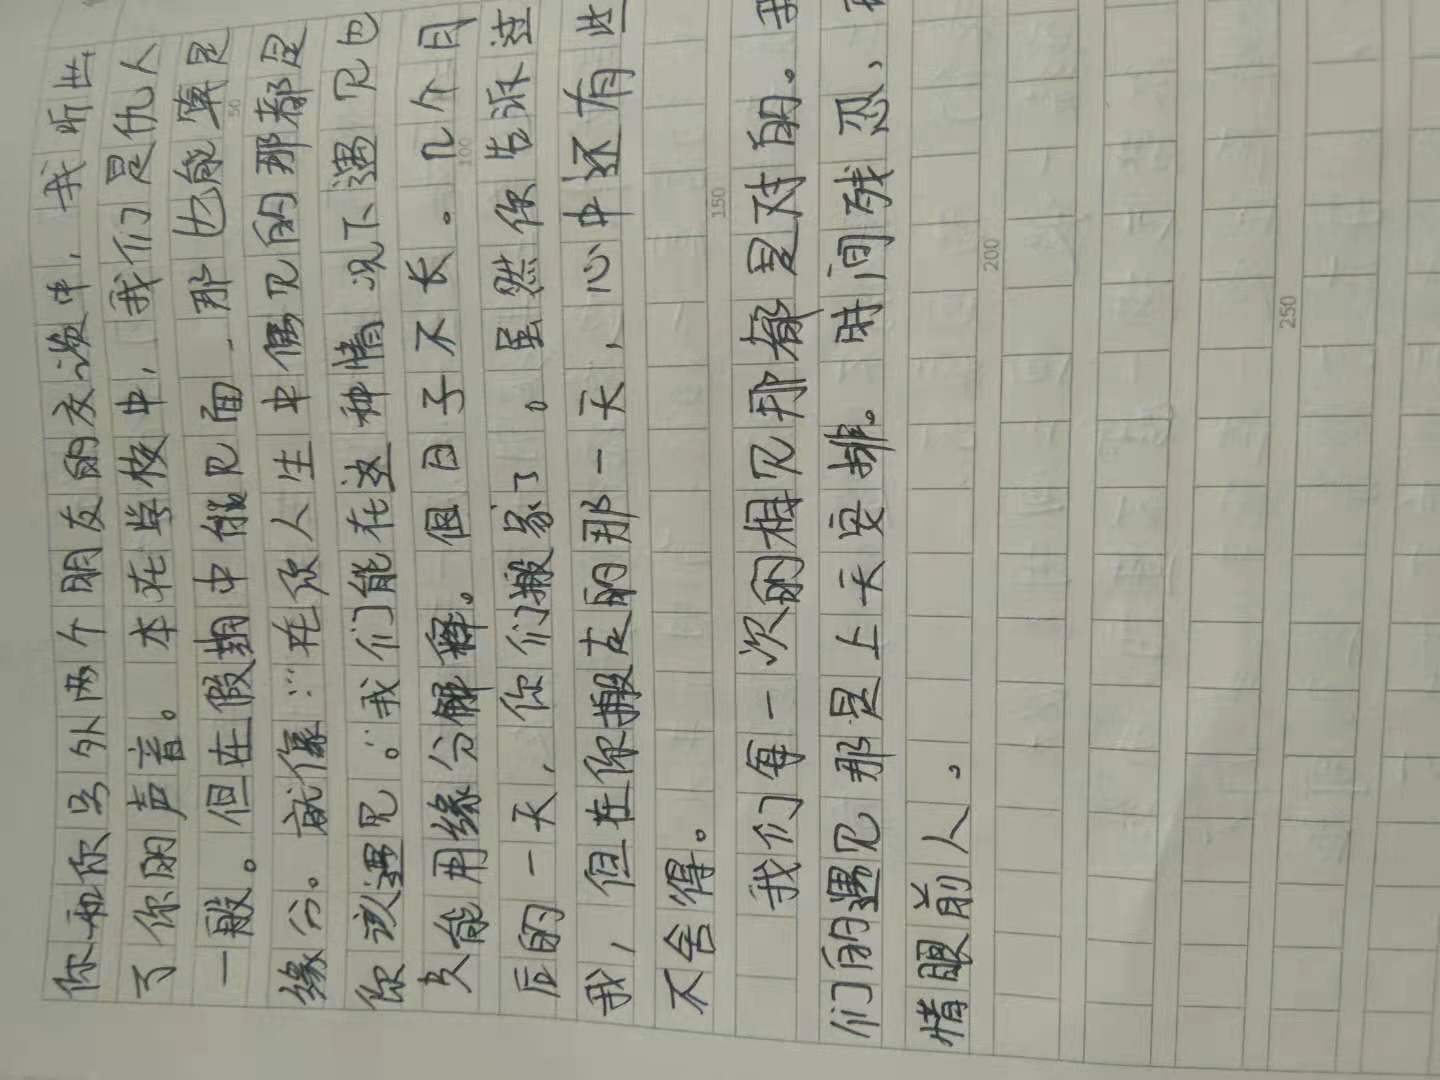 你和你另外两个朋友的交谈中，我听出
了你的声音。本在学校中，我们是仇人
一般。但在假期中能见面，那也能算是
缘分。就像：“在你人生中偶见的那都是
你该遇见。”我们能在这种情况下遇见也
久能用缘分解释。但日子不长。几个月
后的一天，你们搬家了。虽然你告诉过
我，但在你搬走的那一天，心中还有些
不舍得。
我们每一次的相见那都是对的。我
们的遇见那是上天安排。时间残忍，
惜眼前人。
50
100
150
200
250